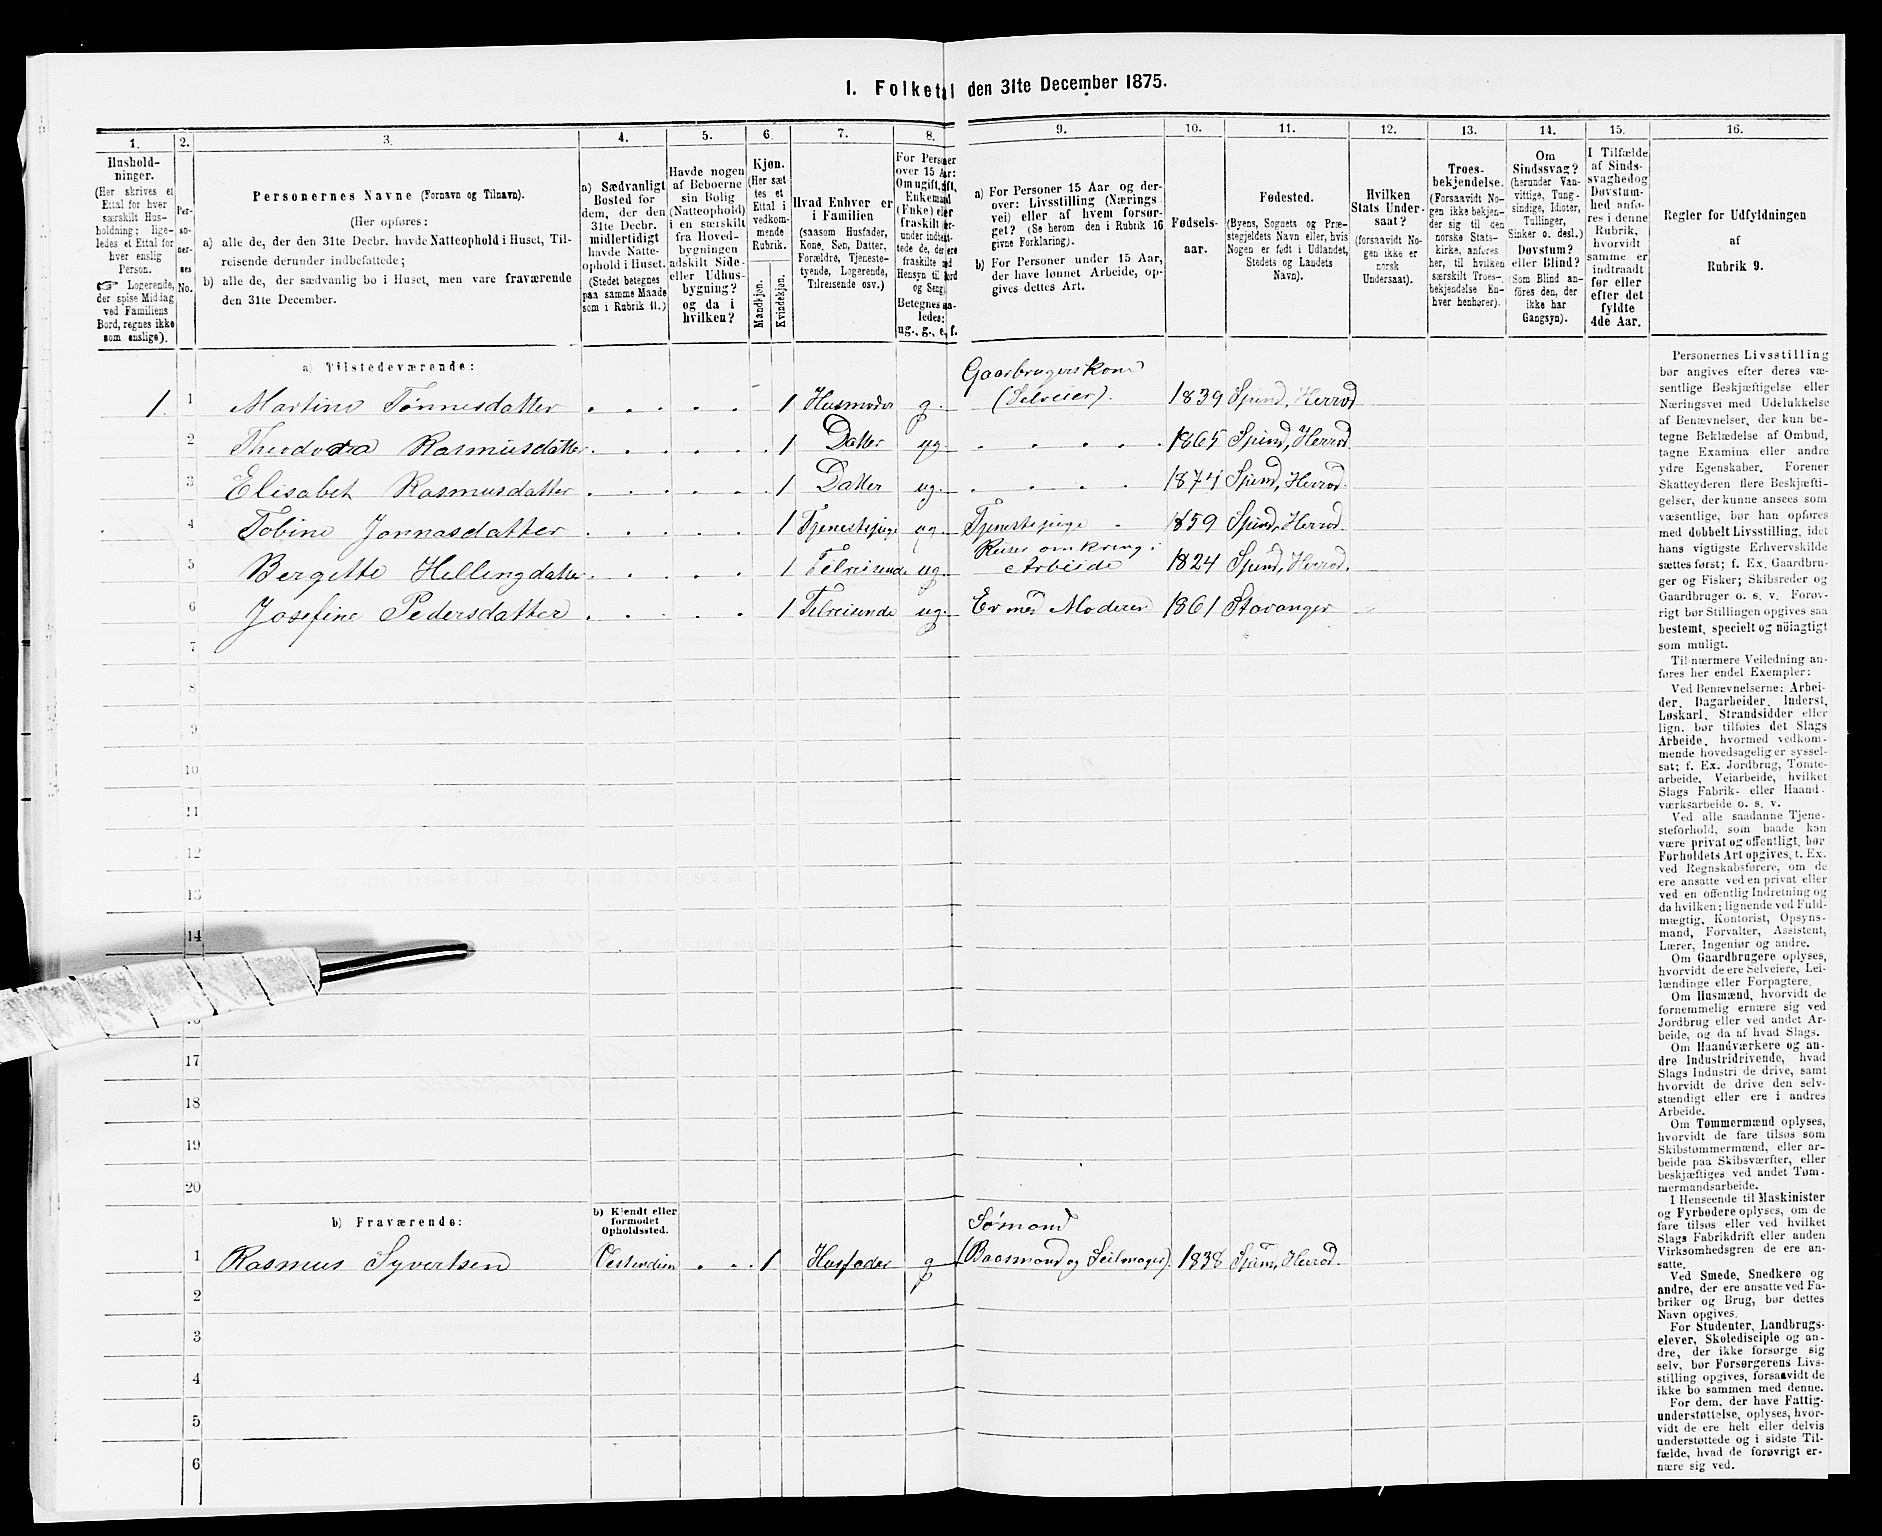 I. Folketal den 31te December 1875.
1.
Hushold-
ninger.
(Her skrives et
Ettal for hver
særskilt Hus-
holdning; lige-
ledes et Ettal for
hver enslig
Person.
☞ Logerende,
der spise Middag
ved Familiens
Bord, regnes ikke
som enslige).
2.
Per-
so-
ner-
nes
No.
3.
Personernes Navne (Fornavn og Tilnavn).
(Her opføres:
a) alle de, der den 31te Decbr. havde Natteophold i Huset, Til-
reisende derunder indbefattede;
b) alle de, der sædvanlig bo i Huset, men vare fraværende
den 31te December.
4.
a) Sædvanligt
Bosted for
dem, der den
31te Decbr.
midlertidigt
havde Natte-
ophold i Huset.
(Stedet betegnes
paa samme Maade
som i Rubrik 11.)
5.
Havde nogen
af Beboerne
sin Bolig
(Natteophold)
i en særskilt
fra Hoved-
bygningen
adskilt Side-
eller Udhus-
bygning?
og da i
hvilken?
6.
Kjøn.
(Her sæt-
tes et
Ettal i
vedkom-
mende
Rubrik.
Mandkjøn.
Kvindekjøn.
7.
Hvad Enhver er
i Familien
(saasom Husfader,
Kone, Søn, Datter,
Forældre, Tjeneste-
tyende, Logerende,
Tilreisende osv.)
8.
For Personer
over 15 Aar:
Om ugift, gift,
Enkemand
(Enke) eller
fraskilt
Betegnes saa-
ledes:
ug., g., e., f.
9.
a) For Personer 15 Aar og der-
over: Livsstilling (Nærings-
vei) eller af hvem forsør-
get? (Se herom den i Rubrik 16
givne Forklaring).
b) For Personer under 15 Aar,
der have lønnet Arbeide, op-
gives dettes Art.
10.
Fødsels-
aar.
11.
Fødested.
(Byens, Sognets og Præ-
stegjeldets Navn eller, hvis
Nogen er født i Udlandet,
Stedets og Landets
Navn).
12.
Hvilken
Stats Under-
saat?
(forsaavidt No-
gen ikke er
norsk
Undersaat).
13.
Troes-
bekjendelse.
(Forsaavidt No-
gen ikke bekjen-
der sig til den
norske Stats-
kirke, anføres
her, til hvilken
særskilt Troes-
bekjendelse En-
hver henhører).
14.
Om
Sindssvag?
(herunder Van-
vittige, Tung-
sindige, Idioter,
Tullinger,
Sinker o. desl.)
Døvstum?
eller Blind?
(Som Blind an-
føres den, der
ikke har
Gangsyn).
15.
I Tilfælde
af Sinds-
svaghed og
Døvstum-
hed anfø-
res i denne
Rubrik,
hvorvidt
samme er
indtraadt
før eller
efter det
fyldte
4de Aar.
16.
Regler for Udfyldningen
af
Rubrik 9.
a) Tilstedeværende:
Gaarbrugerskone
1. 1 Martine Tønnesdatter 1 Husmoder g. (Selveier). 1839 Spind, Herrod
2 Theodora Rasmusdatter 1 Datter ug. 1865 Spind, Herrod.
3 Elisabet Rasmusdatter 1 Datter ug. 1874 Spind, Herrod.
4 Tobine Jonnasdatter 1 Tjenestepige ug. Tjenestepige 1859 Spind, Herrod.
Reiser omkring i
5 Bergitte Hellingdatter 1 Tilreisende ug. Arbeide 1824 Spind, Herrod.
6 Josefine Pedersdatter 1 Tilreisende ug. Er med Moderen 1861 Stavanger
7
8
9
10
11
12
13
14
17
18
19
20
b) Fraværende:
b) Kjendt eller
formodet
Opholdssted.
Sømand
1 Rasmus Syvertsen Vestindien 1 Husfader g (Baasmand og Seilmager). 1838 Spind, Herrod.
2
3
4
5
6
Personernes Livsstilling
bør angives efter deres væ-
sentlige Beskjæftigelse eller
Næringsvei med Udelukkelse
af Benævnelser, der kun be-
tegne Beklædelse af Ombud,
tagne Examina eller andre
ydre Egenskaber. Forener
Skatteyderen flere Beskjæfti-
gelser, der kunne ansees som
væsentlige, bør han opføres
med dobbelt Livsstilling, idet
hans vigtigste Erhvervskilde
sættes først; f. Ex. Gaardbru-
ger og Fisker; Skibsreder og
Gaardbruger o. s. v. Forøv-
rigt bør Stillingen opgives saa
bestemt, specielt og nöiagtigt
som muligt.
Til nærmere Veiledning an-
føres her endel Exempler:
Ved Benævnelserne: Arbei-
der, Dagarbeider, Inderst,
Løskarl, Strandsidder eller
lign. bør tilføies det Slags
Arbeide, hvormed vedkom-
mende hovedsagelig er syssel-
sat; f. Ex. Jordbrug, Tomte-
arbeide, Veiarbeide, hvilket
Slags Fabrik- eller Haand-
værksarbeide o. s. v.
Ved alle saadanne Tjene-
steforhold, som baade kan
være privat og offentligt, bør
Forholdets Art opgives, t. Ex.
ved Regnskabsførere, om de
ere ansatte ved en privat eller
ved en offentlig Indretning og
da hvilken; lignende ved Fuld-
mægtig, Kontorist, Opsyns-
mand, Forvalter, Assistent,
Lærer, Ingeniør og andre.
Om Gaardbrugere oplyses,
hvorvidt de ere Selveiere, Lei-
lændinge eller Forpagtere.
Om Husmænd, hvorvidt de
fornemmelig ernære sig ved
Jordbrug eller ved andet Ar-
beide, og da af hvad Slags.
Om Haandværkere og an-
dre Industridrivende, hvad
Slags Industri de drive, samt
hvorvidt de drive den selv-
stændigt eller ere i andres
Arbeide.
Om Tømmermænd oplyses,
hvorvidt de fare tilsøs som
Skibstømmermænd, eller ar-
beide paa Skibsværfter, eller
beskjæftiges ved andet Tøm-
mermandsarbeide.
I Henseende til Maskinister
og Fyrbødere oplyses, om de
fare tilsøs eller ved hvilket
Slags Fabrikdrift eller anden
Virksomhedsgren de ere an-
satte.
Ved Smede, Snedkere og
andre, der ere ansatte ved Fa-
briker og Brug, bør dettes
Navn opgives.
For Studenter, Landbrugs-
elever, Skoledisciple og an-
dre, der ikke forsørge sig
selv, bør Forsørgerens Livs-
stilling opgives, forsaavidt de
ikke bo sammen med denne.
For dem, der have Fattig-
understøttelse, oplyses, hvor-
vidt de ere helt eller delvis
understøttede og i sidste Til-
fælde, hvad de forøvrigt er-
nære sig ved.